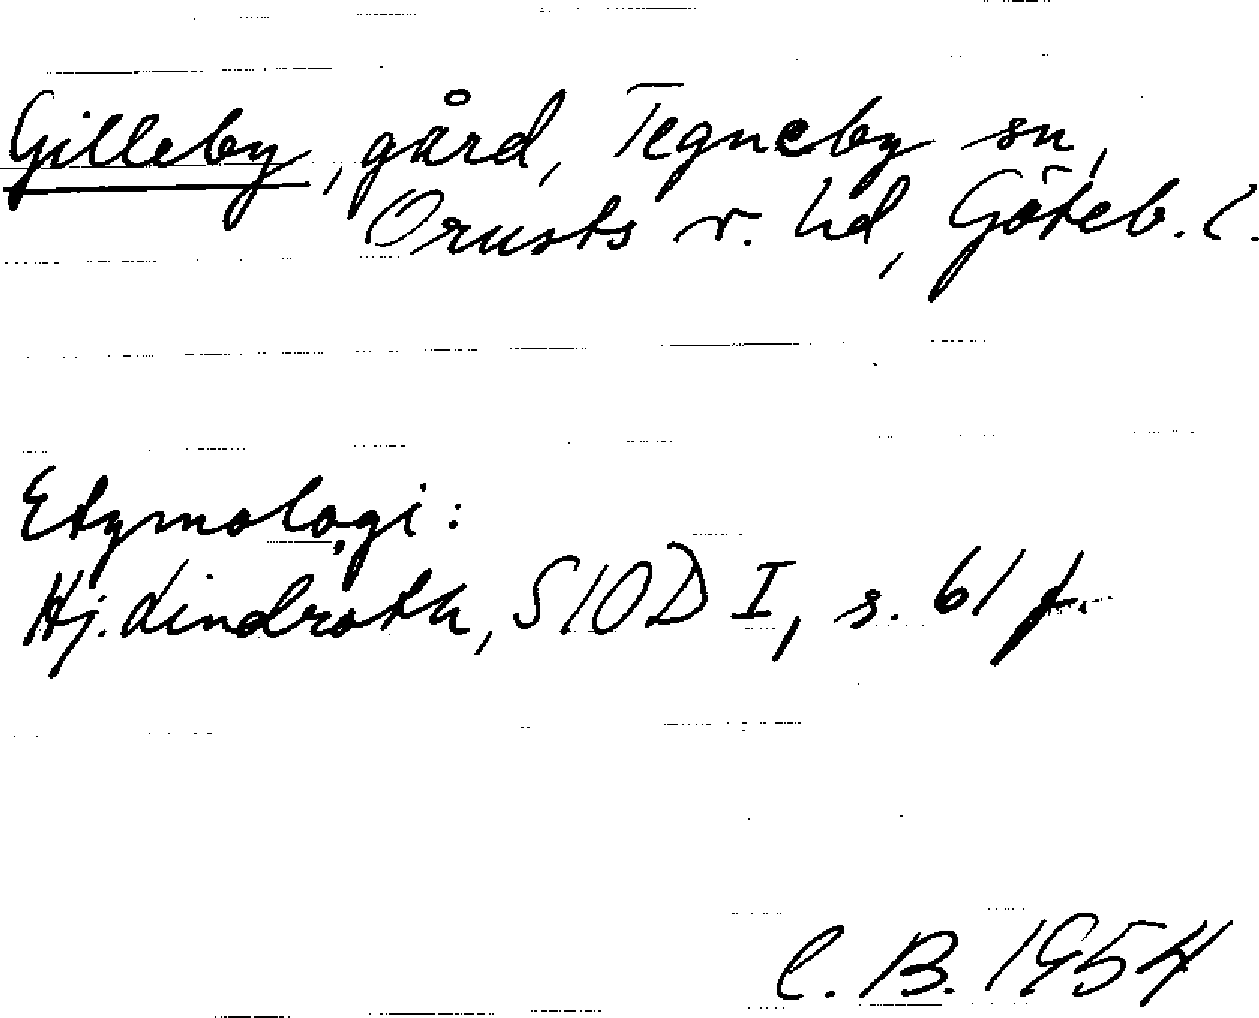 Gilleby, gård, Tegneby sn,
Orusts v. hd, Göteb. l.
Etymologi:
Hj. Lindroth, SIOD I, s. 61 f.
C. B. 1954